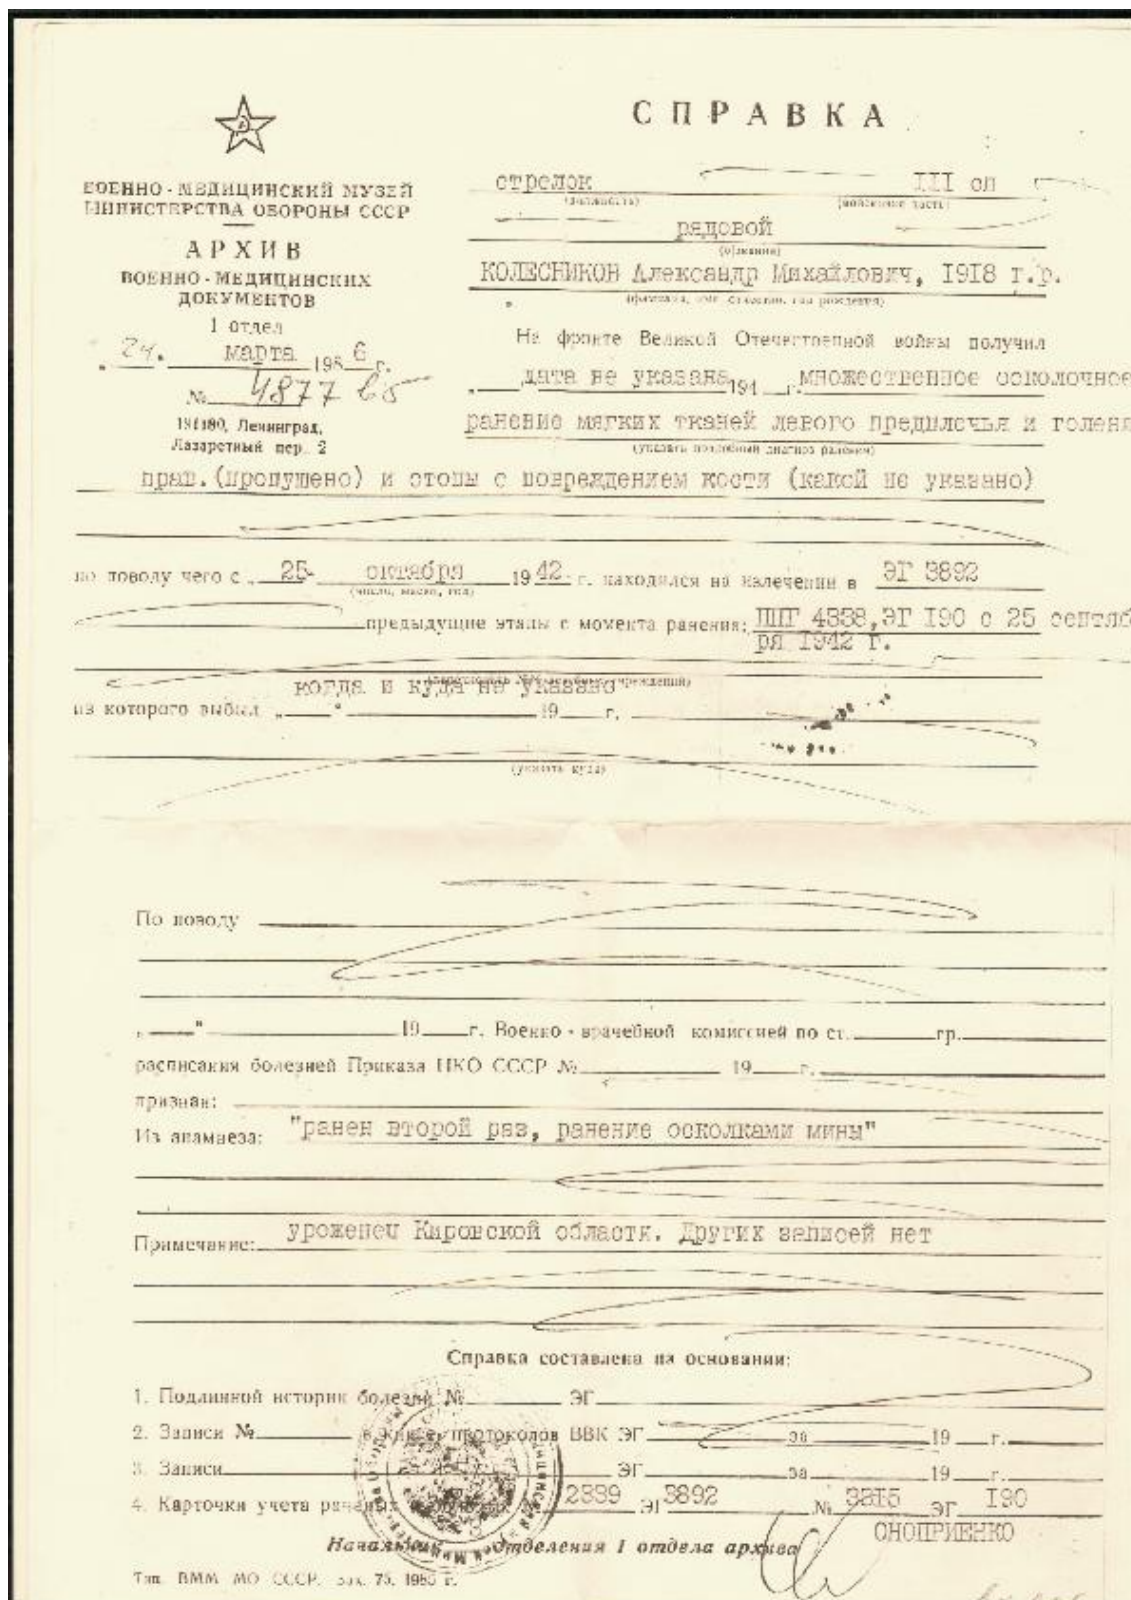 СПРАВКА
ВОЕННО-МЕДИЦИНСКИЙ МУЗЕЙ
МИНИСТЕРСТВА ОБОРОНЫ СССР
АРХИВ
ВОЕННО-МЕДИЦИНСКИХ
ДОКУМЕНТОВ
1 отдел
„24." марта 1986 г.
№ 4877
191180, Ленинград,
Лазаретный пер. 2
стрелок III сп
(должность) (войсковая часть)
рядовой
(звание)
КОЛЕСНИКОВ Александр Михайлович, 1918 г.р.
(фамилия, имя, отчество, год рождения)
На фронте Великой Отечественной войны получил
„ дата не указана 194 г. множественное осколочное
ранение мягких тканей левого предплечья и голени
(указать подробный диагноз ранения)
прав.(пропушено) и стопы с повреждением кости (какой не указано)
по поводу чего с „ 25 " октября 1942 г. находился на излечении в ЭГ 3892
(число, месяц, год)
предыдущие этапы с момента ранения: ППГ 4338, ЭГ I90 с 25 сентяб
ря 1942 г.
когда и куда не указано
из которого выбыл „ " 19 г.
(указать куда)
По поводу
„ " 19 г. Военно-врачебной комиссией по ст. гр.
расписания болезней Приказа НКО СССР № 19 г.
признан:
Из анамнеза: "ранен второй раз, ранение осколками мины"
Примечание: уроженец Кировской области. Других записей нет
Справка составлена на основании:
1. Подлинной истории болезни № ЭГ
2. Записи № в книге протоколов ВВК ЭГ за 19 г.
3. Записи ЭГ за 19 г.
4. Карточки учета раненых 2339 ЭГ 3892 № 3315 ЭГ I90
ОНОПРИЕНКО
Начальник отделения 1 отдела архива
Тип. ВММ МО СССР. Зак. 75. 1985 г.